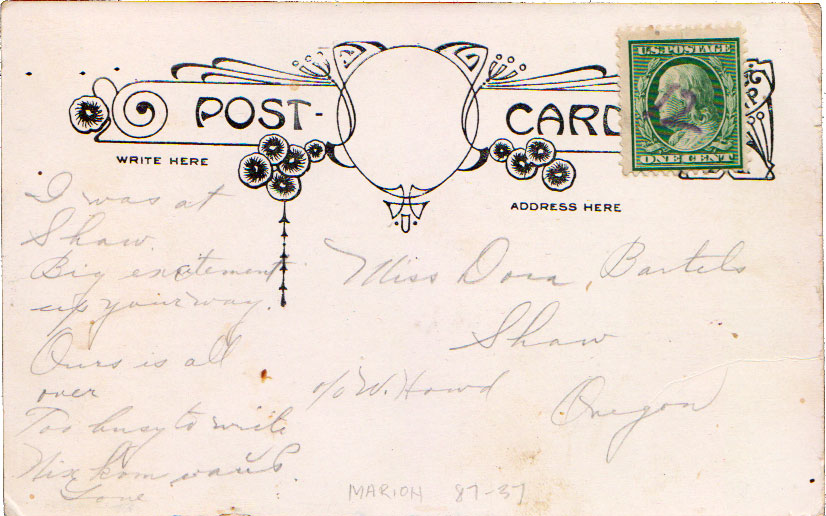 POST-CARD
U.S. POSTAGE
ONE CENT
2
WRITE HERE
ADDRESS HERE
I was at
Shaw.
Big excitement
up your way.
Ours is all
over
Too busy to write
Nix kom
Miss Dora, Bartels
Shaw
c/o W. Howd
Oregon
MARION 87-37